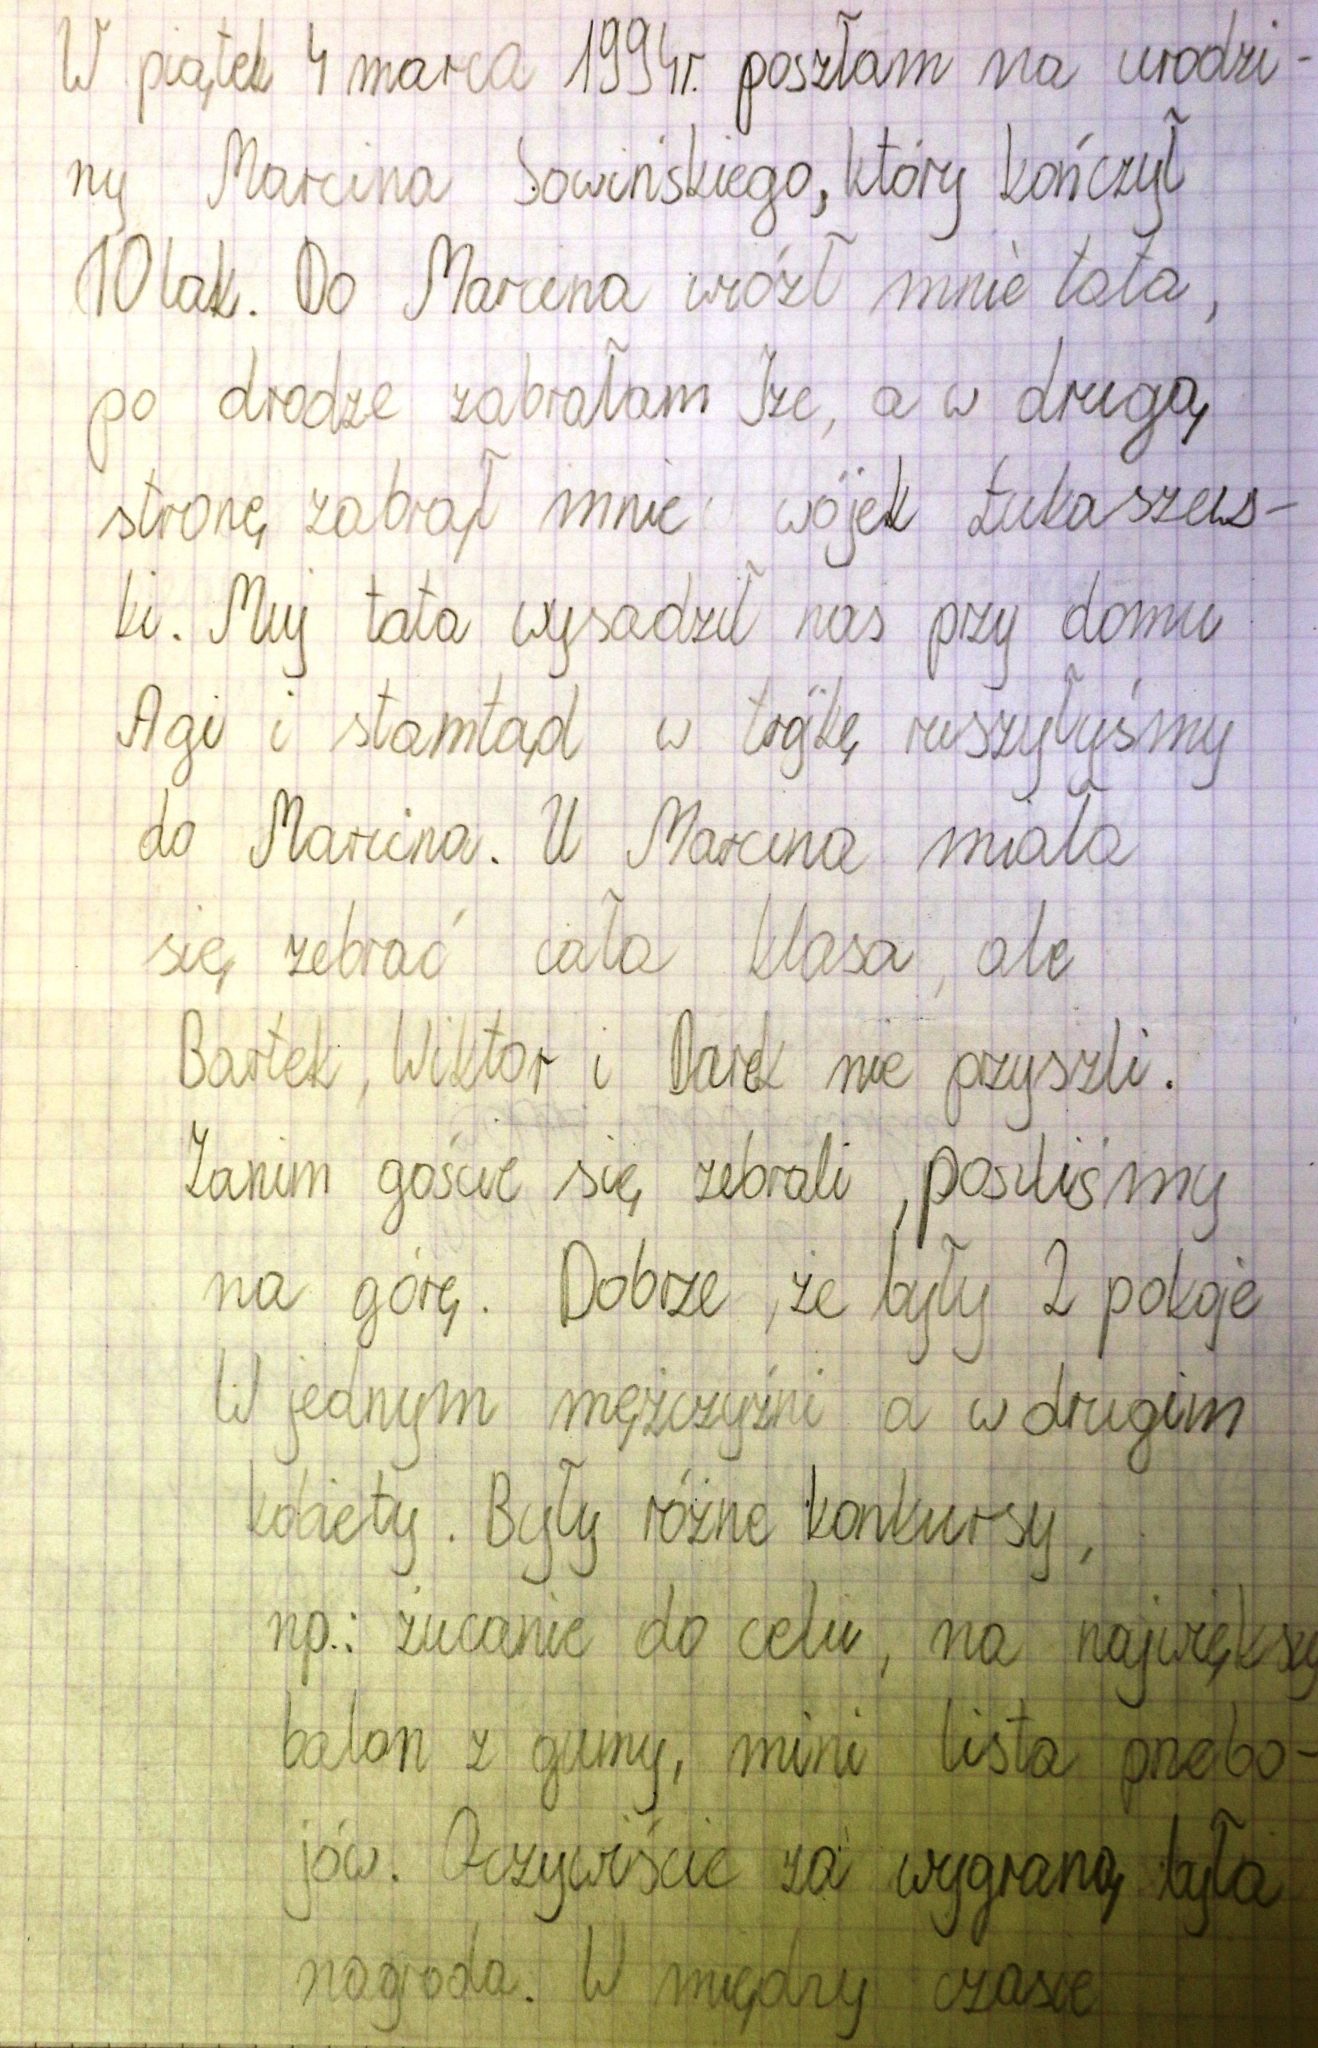 W piątek 4 marca 1994r. poszłam na urodzi-
ny Marcina Sowińskiego, który kończył
10 lak. Do Marcina wiózł mnie tata,
po drodze zabrałam Ize, a w drugą
stronę zabrał mnie wójek Łukaszews-
ki. Muj tata wysadził nas przy domu
Agi i stamtąd w trójkę ruszyłyśmy
do Marcina. U Marcina miała
się zebrać cała klasa, ale
Bartek, Wiktor i Darek nie przyszli.
Zanim goście się zebrali, poszliśmy
na górę. Dobrze, że były 2 pokoje
W jednym mężczyźni a w drugim
kobiety. Były różne konkursy,
np.: żucanie do celu, na największy
balon z gumy, mini lista przebo-
jów. Oczywiście za wygraną była
nagroda. W między czasie